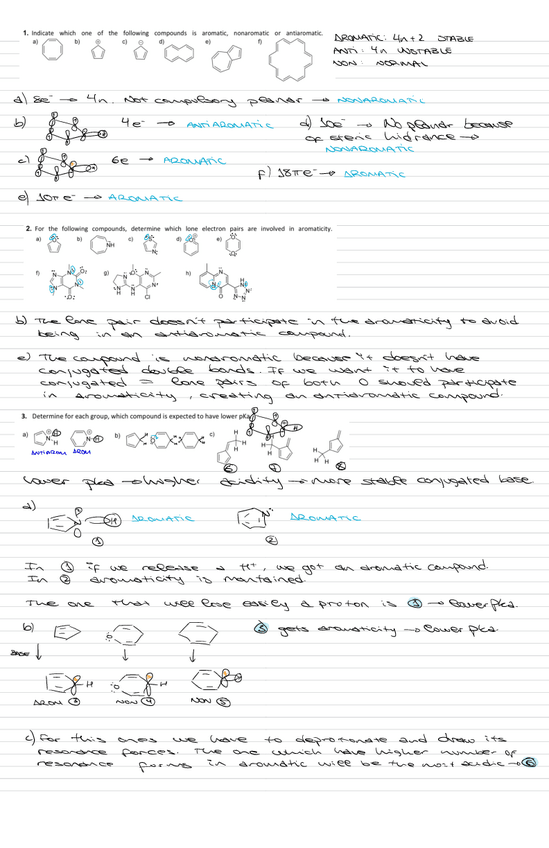 1. Indicate which one of the following compounds is aromatic, nonaromatic or antiaromatic.
a) b) c) d) e) f)
AROMATIC: 4n+2 STABLE
ANTI: 4n UNSTABLE
NON: NORMAL
a) 8e⁻ → 4n. Not compulsory planar → NONAROMATIC
b) 4e⁻ → ANTIAROMATIC
d) 10e⁻ → No planar because
of steric hidrance →
NONAROMATIC
c) 6e → AROMATIC
f) 18πe⁻ → AROMATIC
e) 10πe⁻ → AROMATIC
2. For the following compounds, determine which lone electron pairs are involved in aromaticity.
a) b) c) d) e)
f) g) h)
b) The lone pair doesn't participate in the aromaticity to avoid
being in an antiaromatic compound.
e) The compound is nonaromatic because it doesn't have
conjugated double bonds. If we want it to have
conjugated = lone pairs of both O should participate
in aromaticity, creating an antiaromatic compound.
3. Determine for each group, which compound is expected to have lower pKa
a) b) c)
ANTIAROM AROM
Lower pKa → higher acidity → more stable conjugated base
a)
AROMATIC AROMATIC
① ②
In ① if we release a H⁺, we got an aromatic compound.
In ② aromaticity is maintained.
The one that will lose easily a proton is ① → lower pKa.
b) ③ gets aromaticity → lower pKa
BASE
AROM ③ NON ④ NON ⑤
c) For this ones we have to deprotonate and draw its
resonance forces. The one which have higher number of
resonance forms in aromatic will be the most acidic → ⑥